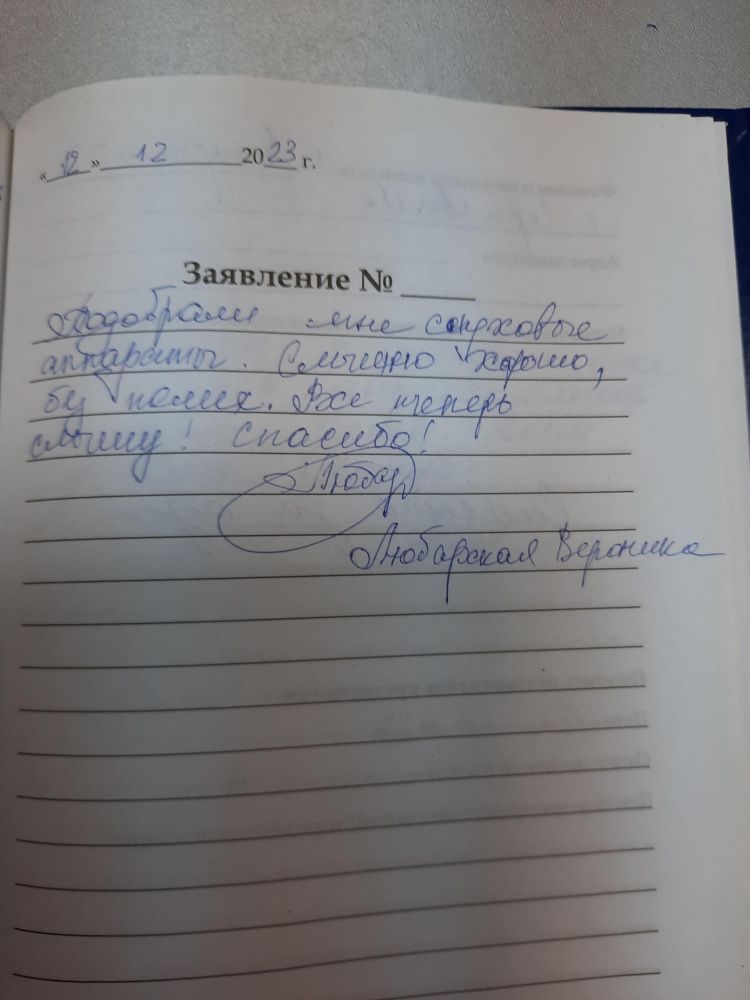 «12» 12 2023 г.
Заявление № ____
Подобрали мне слуховые
аппараты. Слышно хорошо,
без помех. Все теперь
слышу! Спасибо!
Любар
Любарская Вероника